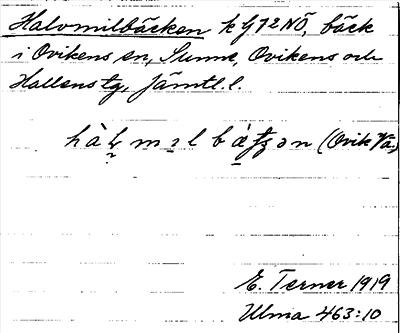 Halvmilbäcken k G72 NÖ, bäck
i Ovikens sn, Sunne, Ovikens och
Hallens tg, Jämtl. l.
(Ovik Vä.)
E. Terner 1919
Ulma 463:10